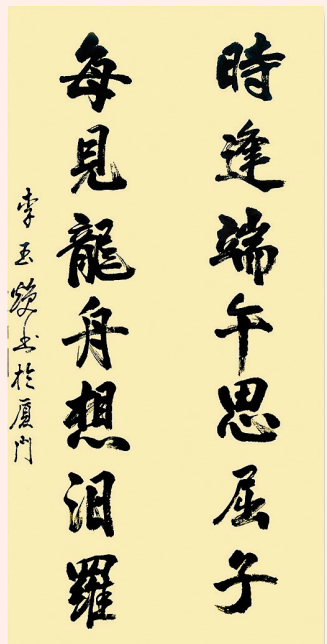 時逢端午思屈子
每見龍舟想汨羅
李玉焕书於厦門